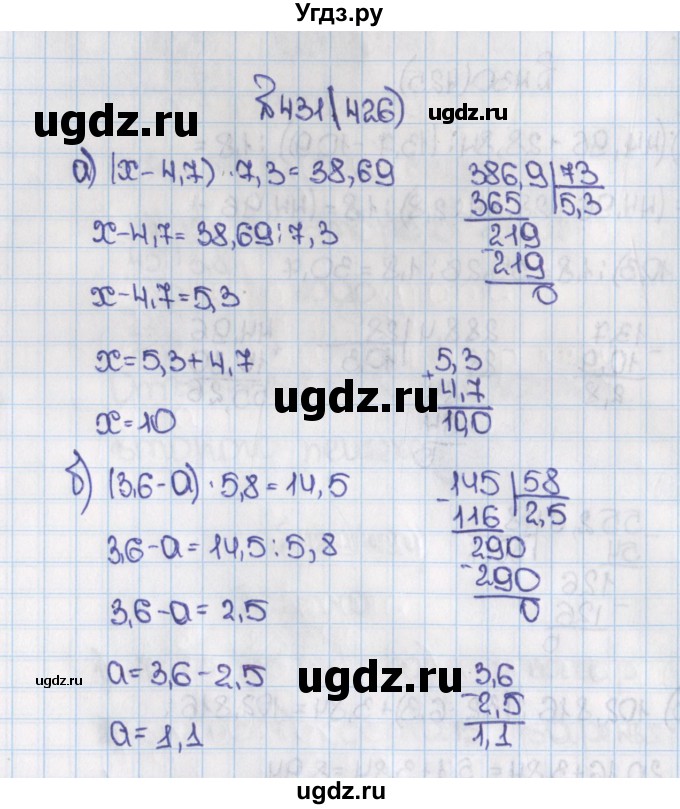 Угдз.ру
№431(426)
ugdz.ru
ugdz.ru
а) (х-4,7)·7,3=38,69
х-4,7=38,69:7,3
х-4,7=5,3
х=5,3+4,7
х=10
386,9 73
365 5,3
219
219
0
5,3
+
4,7
10,0
ugdz.ru
б) (3,6-а)·5,8=14,5
3,6-а=14,5:5,8
3,6-а=2,5
а=3,6-2,5
а=1,1
-145 58
116 2,5
290
-290
0
-3,6
2,5
1,1
ugdz.ru
ugdz.ru
ugdz.ru